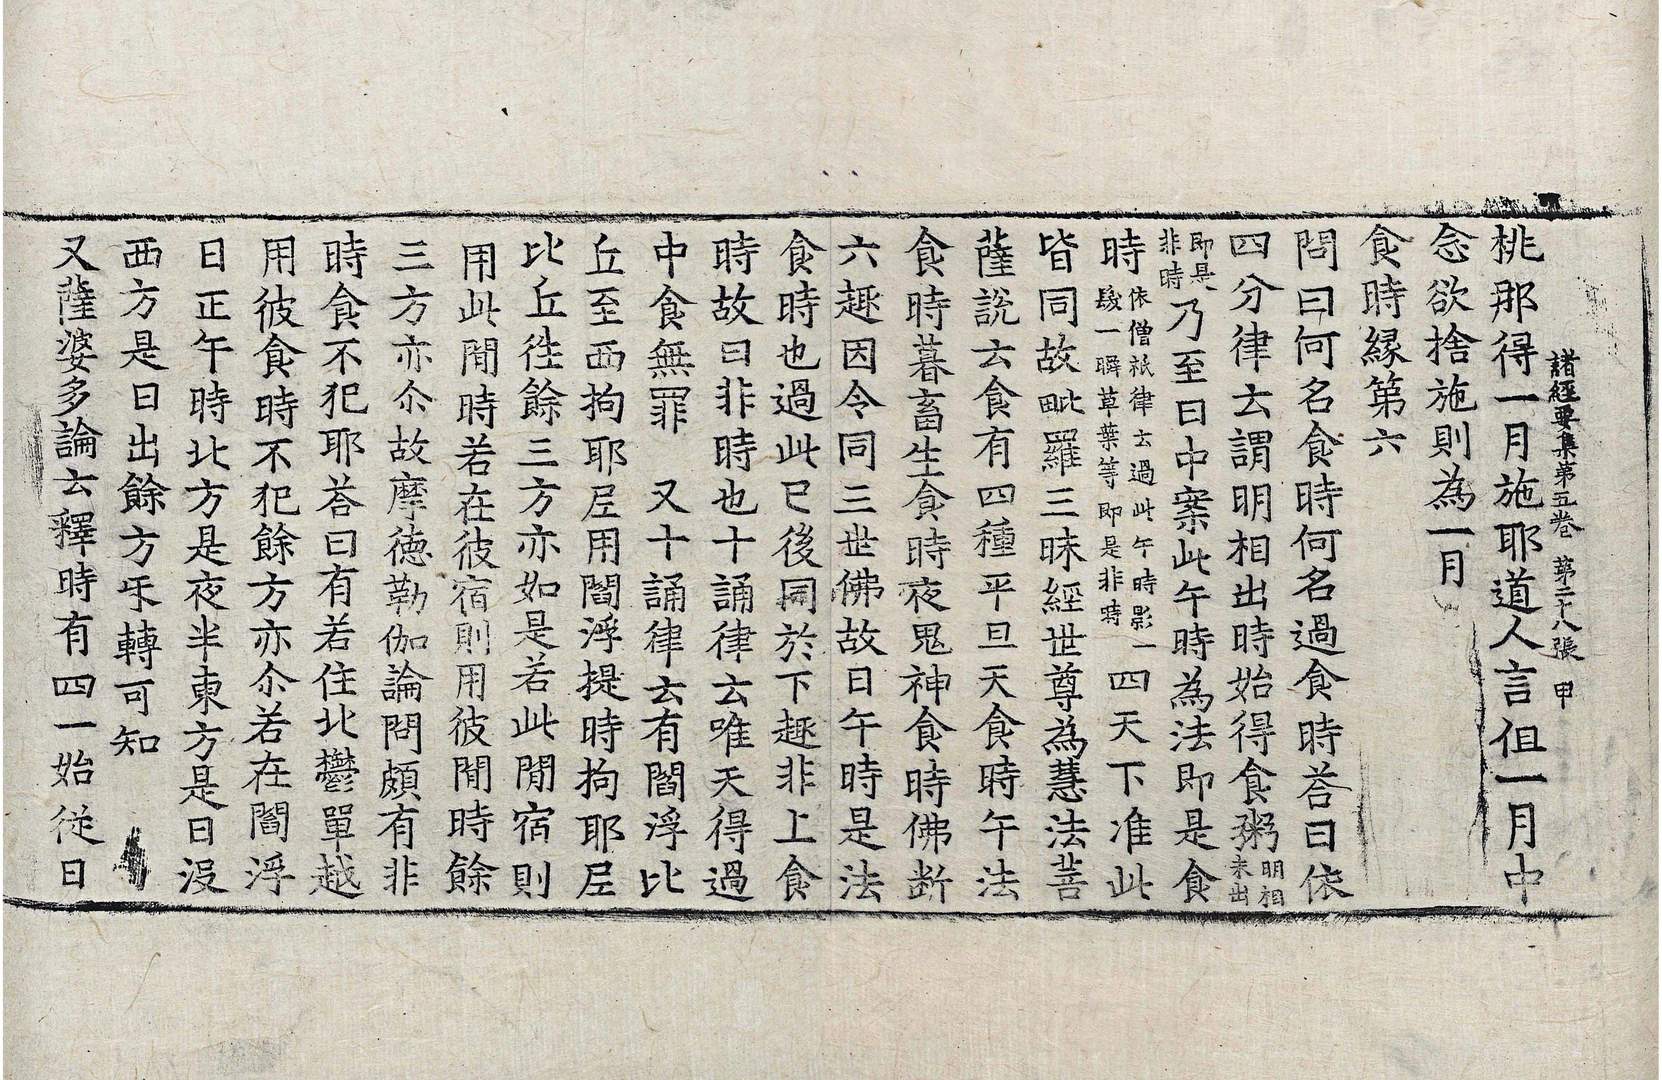 諸經要集第五卷 第二十八張 甲
桃那得一月施耶道人言但一月中
念欲捨施則為一月
食時緣第六
問曰何名食時何名過食時荅曰依
四分律云謂明相出時始得食粥明相未出
即是非時乃至日中案此午時為法即是食
時依僧祇律云過此午時影一髮一瞬草葉等即是非時四天下准此
皆同故毗羅三昧經世尊為慧法菩
薩說云食有四種平旦天食時午法
食時暮畜生食時夜鬼神食時佛断
六趣因令同三世佛故日午時是法
食時也過此已後同於下趣非上食
時故曰非時也十誦律云唯天得過
中食無罪 又十誦律云有閻浮比
丘至西拘耶尼用閻浮提時拘耶尼
比丘徃餘三方亦如是若此間宿則
用此間時若在彼宿則用彼間時餘
三方亦尒故摩德勒伽論問頗有非
時食不犯耶荅曰有若住北鬱單越
用彼食時不犯餘方亦尒若在閻浮
日正午時北方是夜半東方是日没
西方是日出餘方㸦轉可知
又薩婆多論云釋時有四一始從日